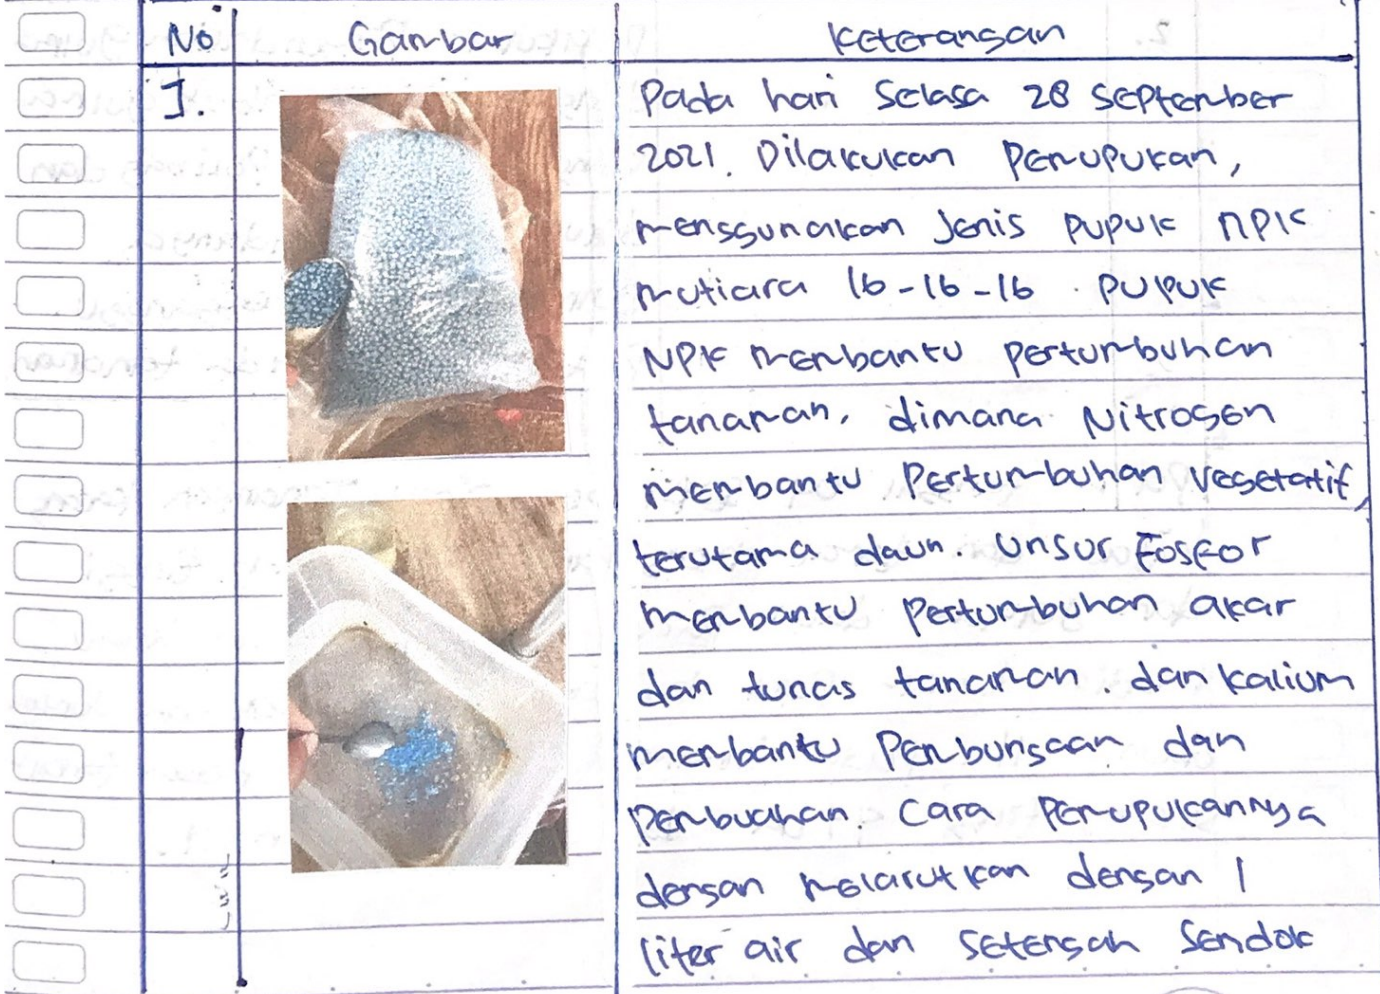 No Gambar Keterangan
1. Pada hari Selasa 28 September
2021. Dilakukan Pemupukan,
menggunakan Jenis pupuk NPK
mutiara 16-16-16. PUPUK
NPK membantu pertumbuhan
tanaman, dimana Nitrogen
membantu Pertumbuhan vegetatif,
terutama daun. Unsur Fosfor
membantu Pertumbuhan akar
dan tunas tanaman. dan kalium
membantu Pembungaan dan
Pembuahan. Cara Pemupukannya
dengan melarutkan dengan 1
liter air dan setengah Sendok